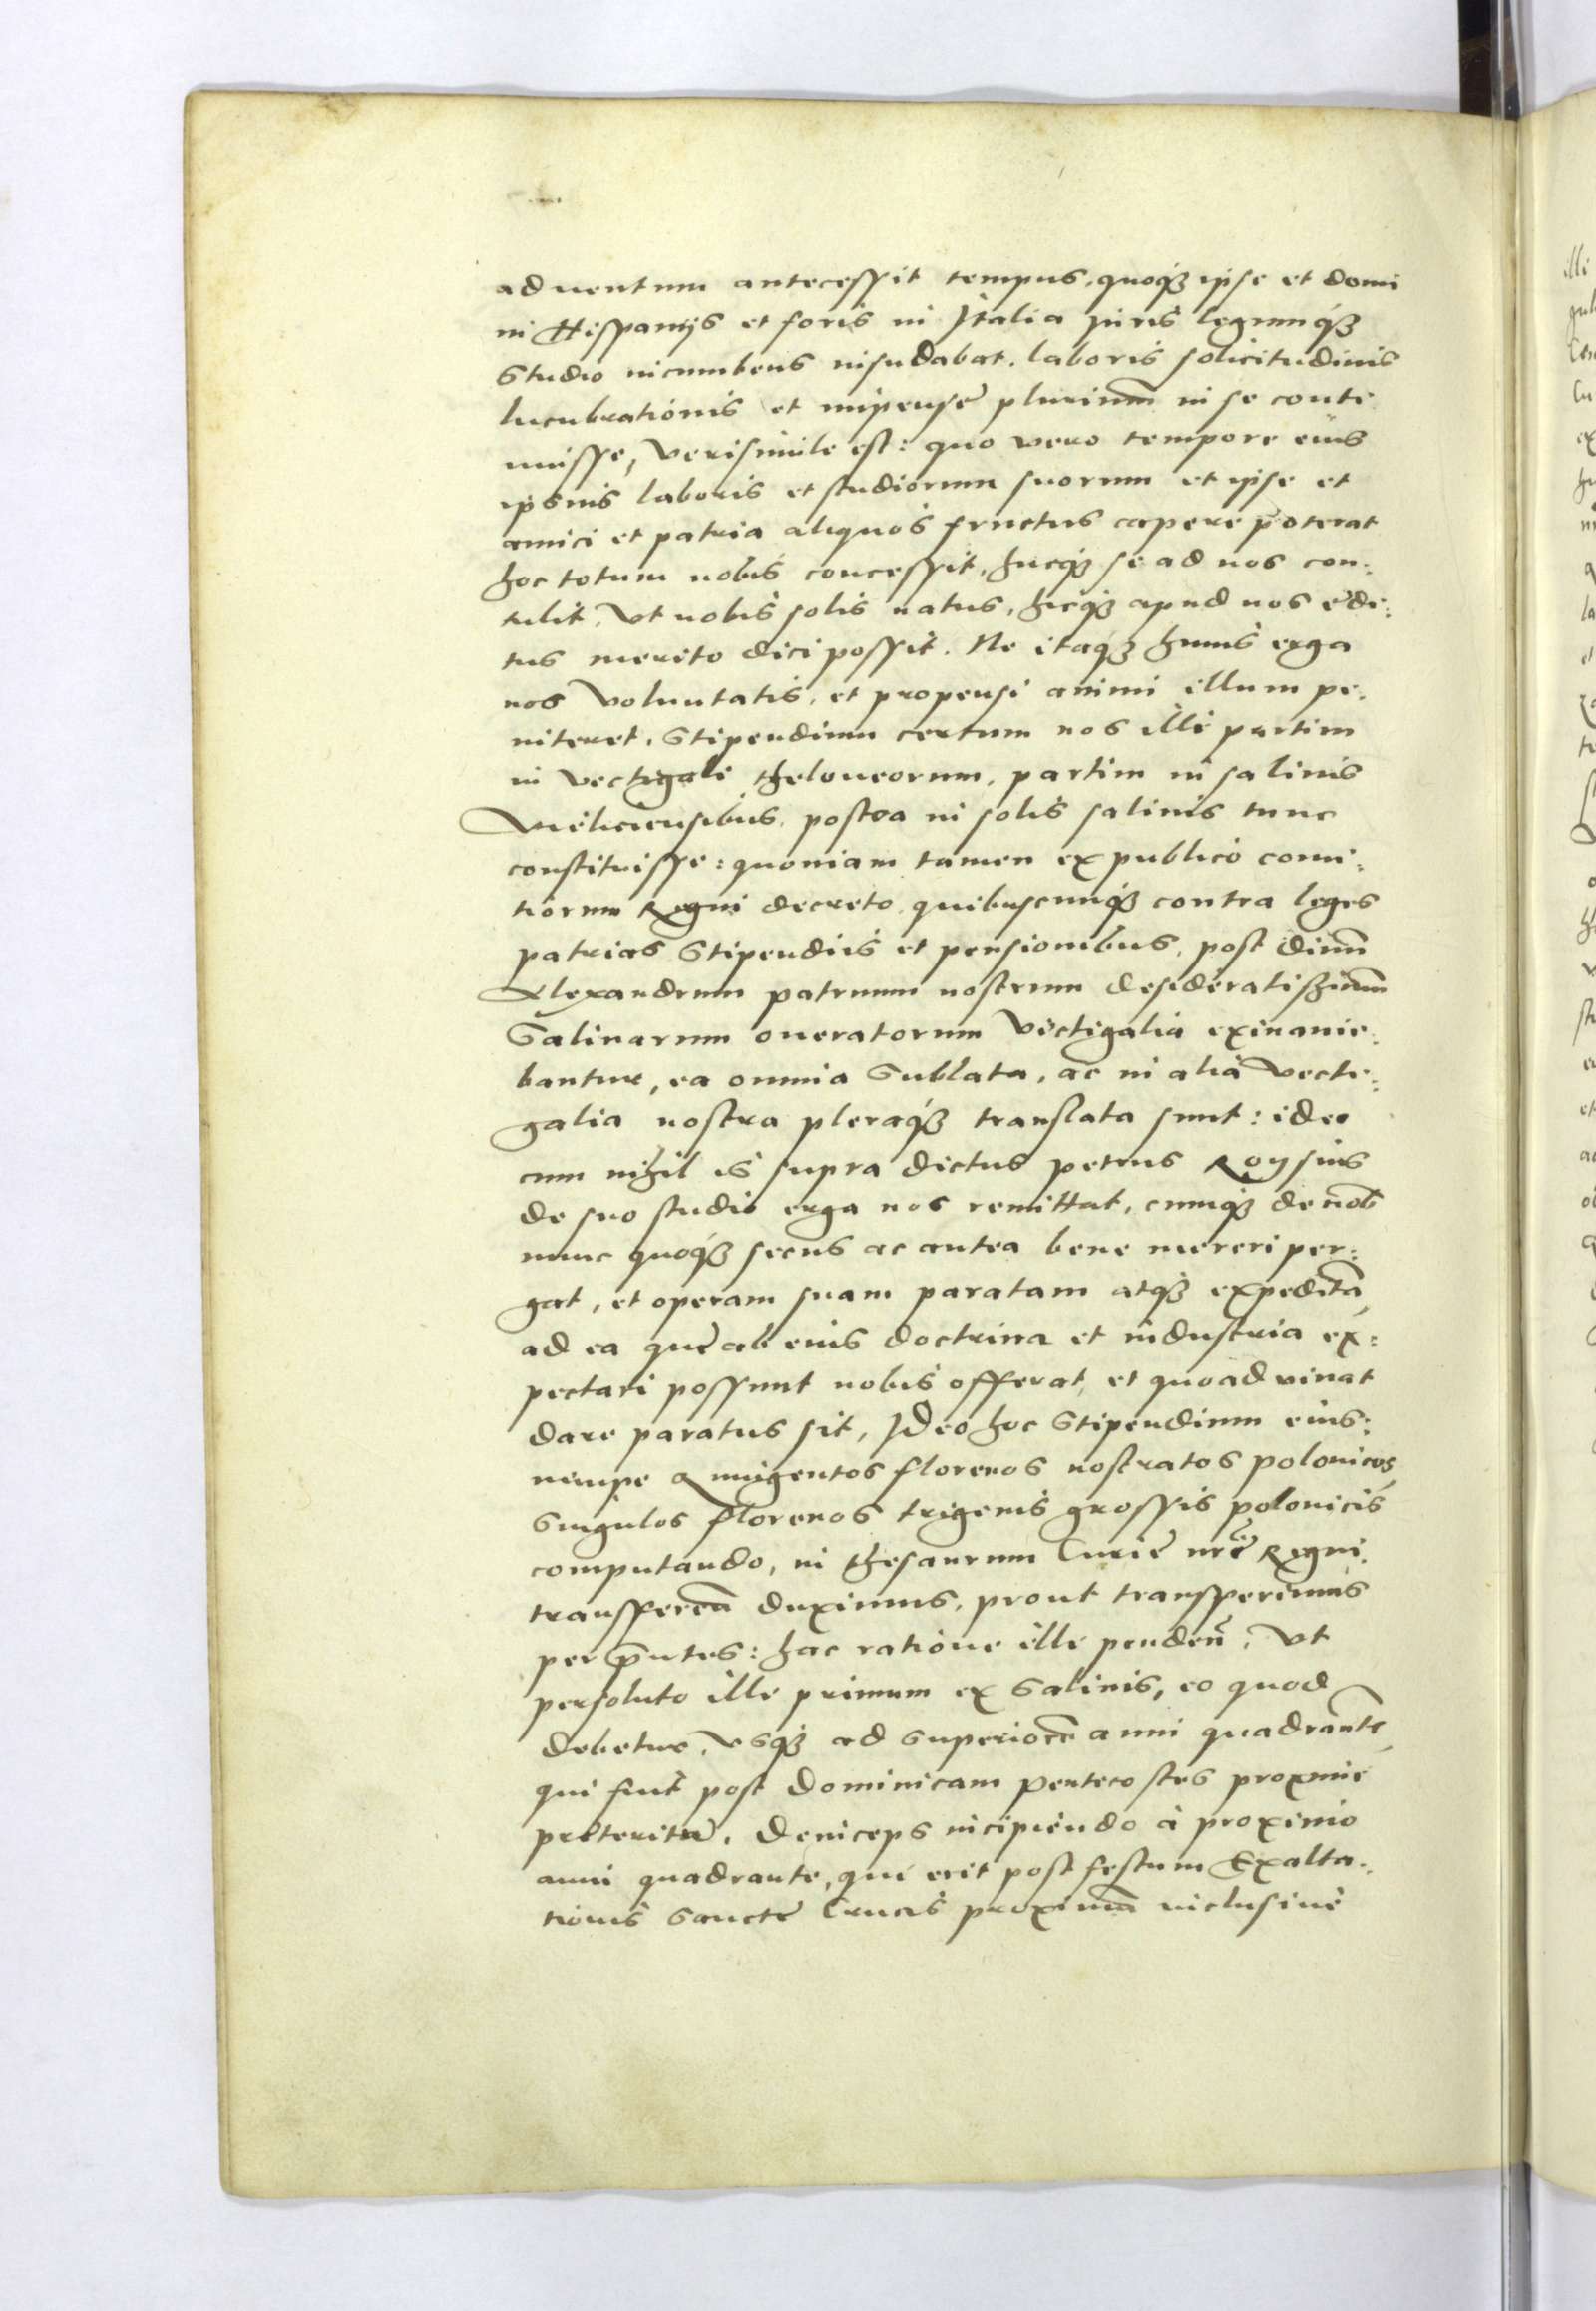 aduentum antecessit tempus, quoq₃ ipse et domi
in Hispanijs et foris in Italia iuris legumq₃
studio incumbens insudabat. laboris solicitudinis
lucubrationis et impensę plurimu̅ in se conti
nuisse, verisimile est: quo vero tempore eius
ipsius laboris et studiorum suorum et ipse et
amici et patria aliquos fructus capere poterat
hoc totum nobis concessit, hucq₃ se ad nos con:
tulit, vt nobis solis natus, hicq₃ apud nos edi:
tus merito dici possit. Ne itaq₃ huius erga
nos voluntatis, et propensi animi illum pe:
niteret, stipendium certum nos illi partim
in vectigali theloneorum, partim in salinis
Vieliciensibus, postea in solis salinis tunc
constituisse: quoniam tamen ex publico comi:
tiorum Regni decreto quibuscunq₃ contra leges
patrias stipendiis et pensionibus, post diuu̅
Alexandrum patruum nostrum desideratissimu̅
Salinarum oneratorum vectigalia exinanie:
bantur, ea omnia sublata, ac in alia vecti:
galia nostra pleraq₃ translata sunt: ideo
cum nihil is supra dictus petrus Roysius
de suo studio erga nos remittat, cumq₃ de nob̅
nunc quoq₃ secus ac antea bene mereri per:
gat, et operam suam paratam atq₃ expedita̅
ad ea quę ab eius doctrina et industria ex:
pectari possunt nobis offerat, et quoad viuat
dare paratus sit, Ideo hoc stipendium eius:
nempe Quingentos florenos nostratos polonicos
singulos florenos trigenis grossis polonicis
computando, in thesaurum Curię nr̅ę Regni
transferen̅ duximus, prout transferimus
per p̅ntes: hac ratione illi penden̅, vt
persoluto illi primum ex salinis, eo quod
debetur, vsq₃ ad superiore̅ anni quadrante̅
qui fuit post dominicam Pentecostes proximę
pręteritę, deniceps incipiendo à proximo
anni quadrante, qui erit post festum Exalta:
tionis sanctę Crucis proximu̅ inclusiuè